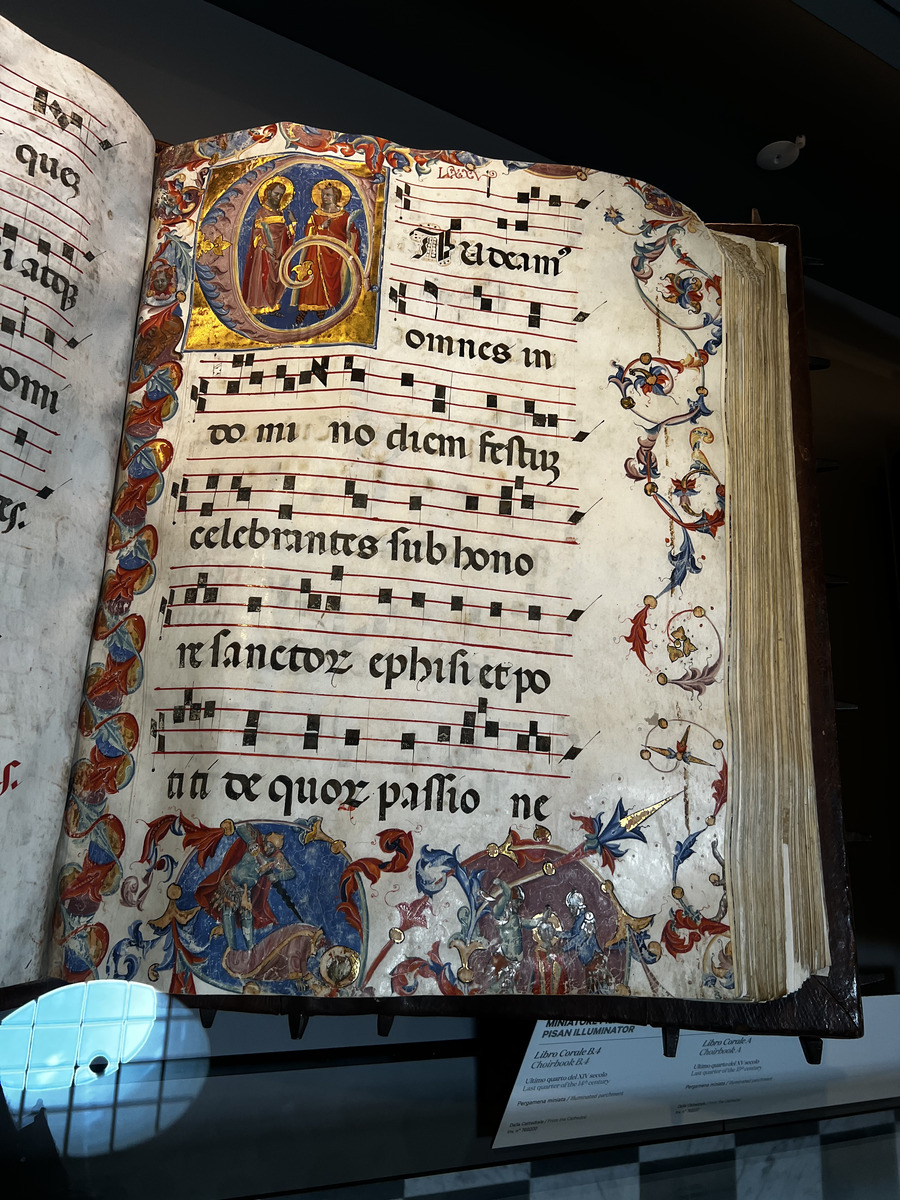 ques
i atqz
omi
s.
LXXXV
Gaudeam9
omnes in
do mi no diem festuz
celebrantes sub hono
re sanctoꝝ ephisi et po
titi de quoꝝ passio ne
PISAN ILLUMINATOR
Libro Corale B.4
Choirbook B.4
Ultimo quarto del XIV secolo
Last quarter of the 14th century
Pergamena miniata / Illuminated parchment
Libro Corale A
Choirbook A
Ultimo quarto del XIV secolo
Last quarter of the 14th century
Pergamena miniata / Illuminated parchment